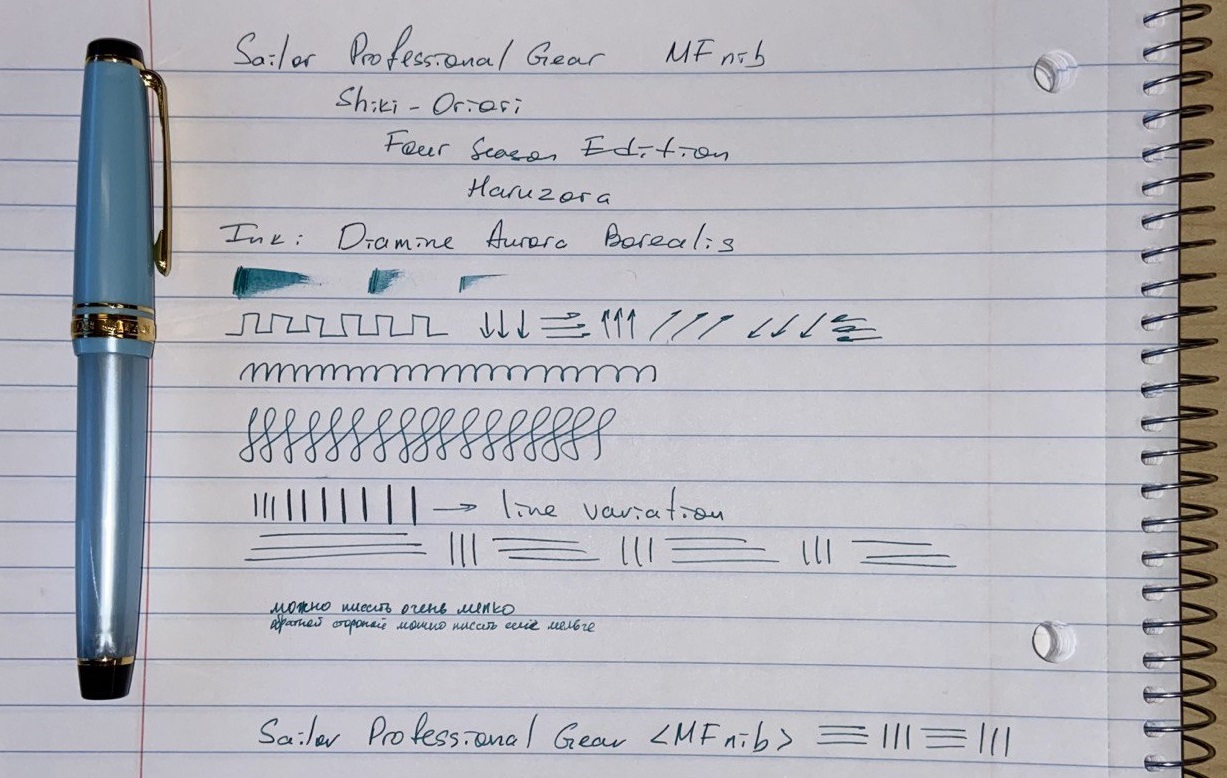 Sailor Professional Gear MF nib
Shiki-Oriori
Four Season Edition
Haruzora
Ink: Diamine Aurora Borealis
→ line variation
можно писать очень мелко
обратной стороной можно писать ещё мельче
Sailor Professional Gear <MF nib>